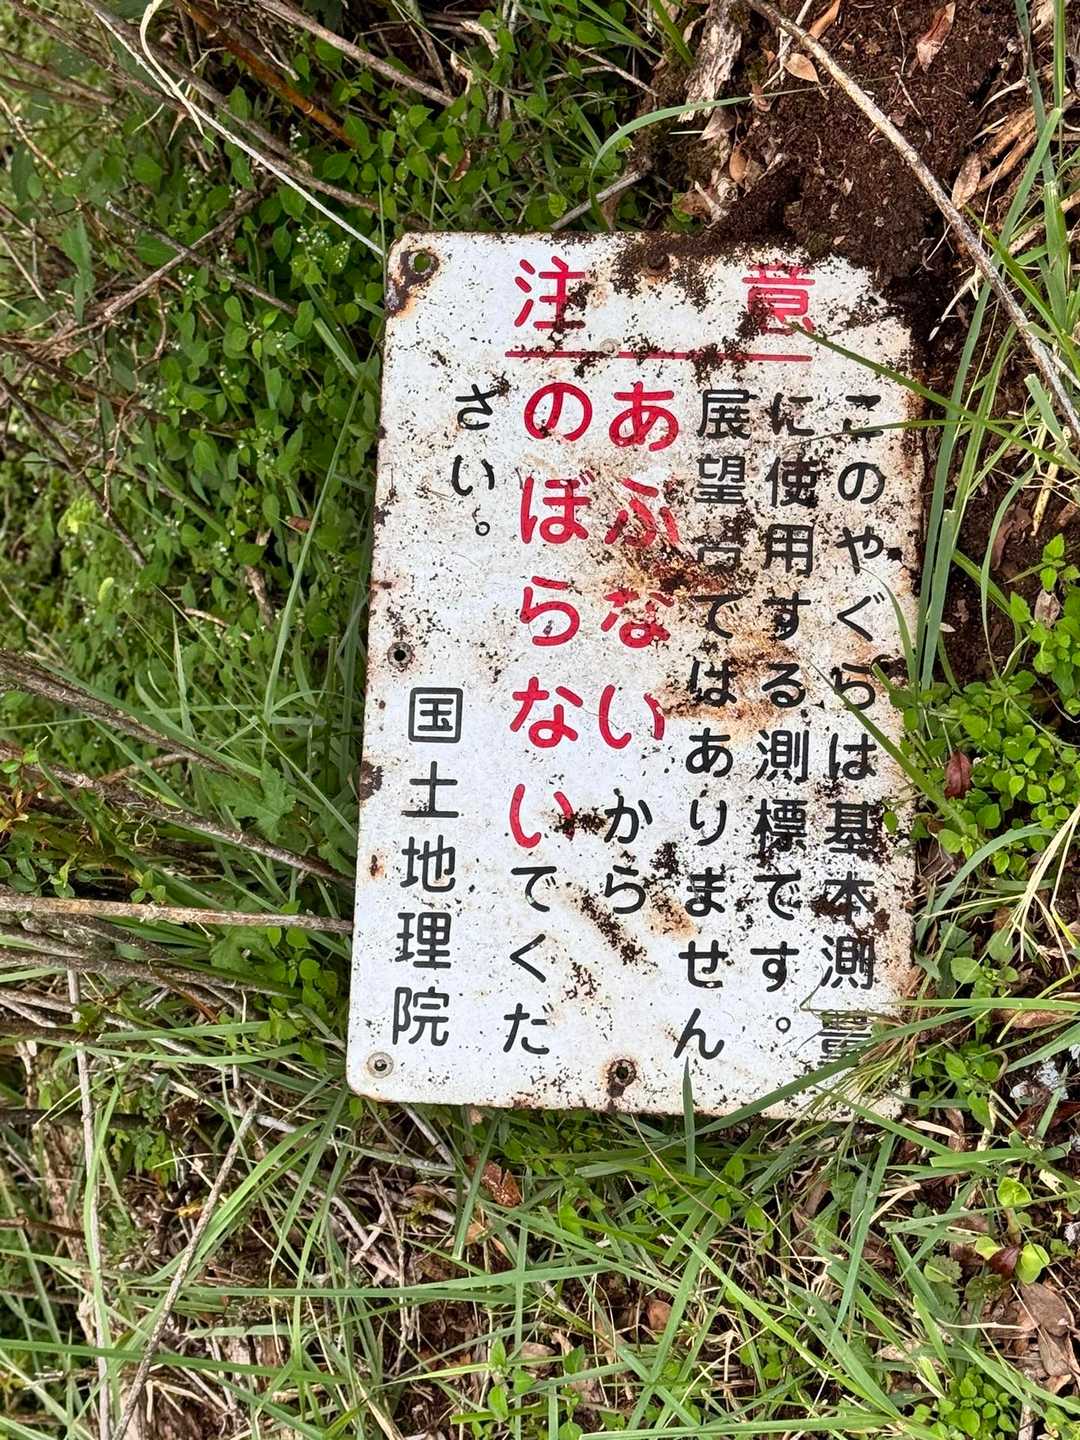 注意
このやぐらは基本測量
に使用する測標です。
展望台ではありません
あぶないから
のぼらないでくだ
さい。
国土地理院